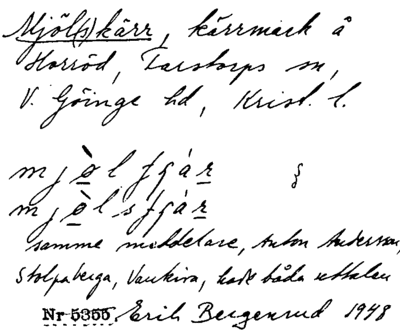 Mjöl(s)kärr, kärrmark å
Horröd, Farstorps sn,
V. Göinge hd, Krist. l.
mjòl ʃɡár
mjòls ʃɡár
samme meddelare, Anton Andersson,
Stolpaberga, Vankiva, hade båda uttalen
Nr 5355. Erik Bergenrud 1948